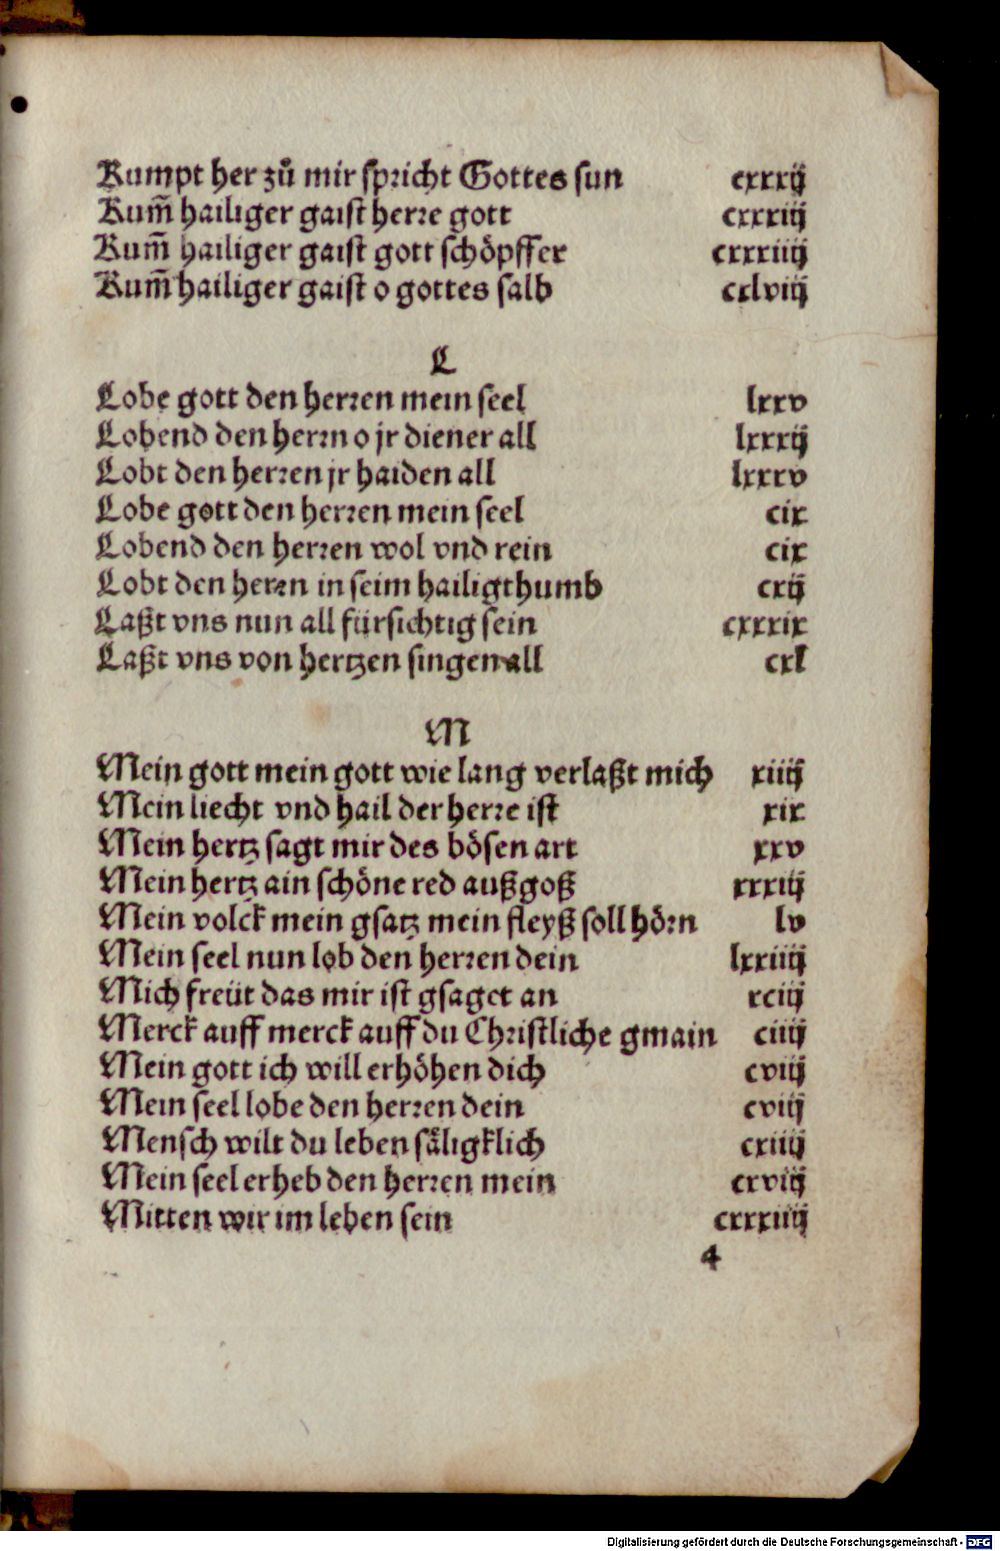 Kumpt her zů mir spricht Gottes sun cxxxij
Kum̄ hailiger gaist herre gott cxxxiij
Kum̄ hailiger gaist gott schöpffer cxxxiiij
Kum̄ hailiger gaist o gottes salb cxlviij
L
Lobe gott den herren mein seel lxxv
Lobend den herrn o jr diener all lxxxij
Lobt den herren jr haiden all lxxxv
Lobe gott den herren mein seel cix
Lobend den herren wol vnd rein cix
Lobt den herrn in seim hailigthumb cxij
Laßt vns nun all fürsichtig sein cxxxix
Laßt vns von hertzen singen all cxl
M
Mein gott mein gott wie lang verlaßt mich xiiij
Mein liecht vnd hail der herre ist xix
Mein hertz sagt mir des bösen art xxv
Mein hertz ain schöne red außgoß xxxiij
Mein volck mein gsatz mein fleyß soll hörn lv
Mein seel nun lob den herren dein lxxiiij
Mich freüt das mir ist gsaget an xciij
Merck auff merck auff du Christliche gmain ciiij
Mein gott ich will erhöhen dich cviij
Mein seel lobe den herren dein cviij
Mensch wilt du leben säligklich cxiiij
Mein seel erheb den herren mein cxviij
Mitten wir im leben sein cxxxiiij
4
Digitalisierung gefördert durch die Deutsche Forschungsgemeinschaft - DFG